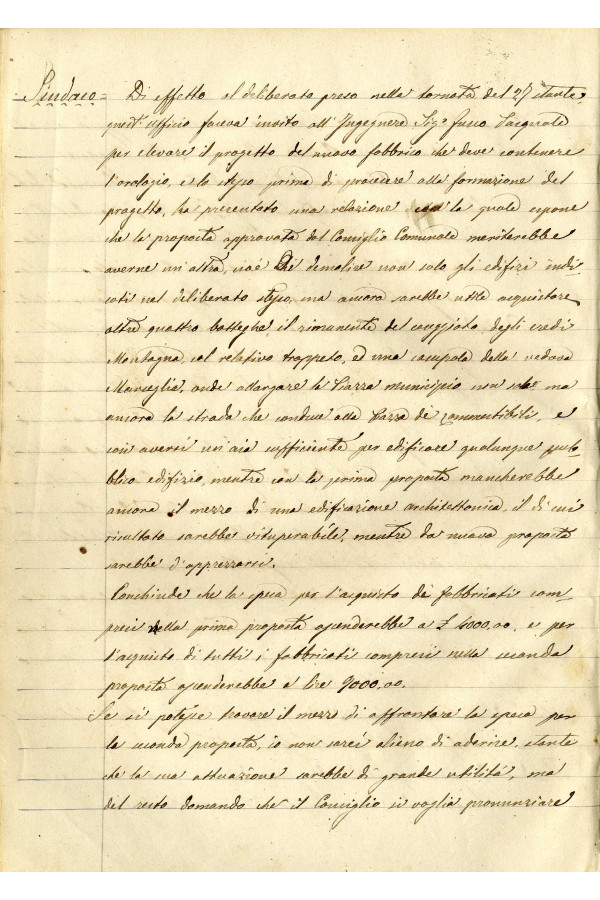 Sindaco = Di effetto al deliberato preso nella tornata del 27 stante,
quest'ufficio faceva invito all'Ingegnere Sig.r Fusco Pasquale
per elevare il progetto del nuovo fabbrico che deve contenere
l'orologio, e lo stesso prima di procedere alla formazione del
progetto, ha presentato una relazione con la quale espone
che la proposta approvata dal Consiglio Comunale meriterebbe
averne un'altra, cioè di demolire non solo gli edifizi indi
cati nel deliberato stesso, ma ancora sarebbe utile acquistare
altre quattro botteghe, il rimanente del caseggiato degli eredi
Montagna, col relativo trappeto, ed una casupola della vedova
Marceglia, onde allargare la Piazza Municipio non solo ma
ancora la strada che conduce alla Piazza de' Commestibili, e
così aversi un'aia sufficiente per edificare qualunque pub
blico edifizio, mentre con la prima proposta mancherebbe
ancora il mezzo di una edificazione architettonica, il di cui
risultato sarebbe vituperabile, mentre la nuova proposta
sarebbe d'apprezzarsi.
Conchiude che la spesa per l'acquisto dei fabbricati com
presi nella prima proposta ascenderebbe a £ 4000,00. e per
l'acquisto di tutti i fabbricati compresi nella seconda
proposta ascenderebbe a lire 9000,00.
Se si potesse trovare il mezzo di affrontare la spesa per
la seconda proposta, io non sarei alieno di aderire, stante
che la sua attuazione sarebbe di grande utilità, ma
del resto domando che il Consiglio si voglia pronunziare